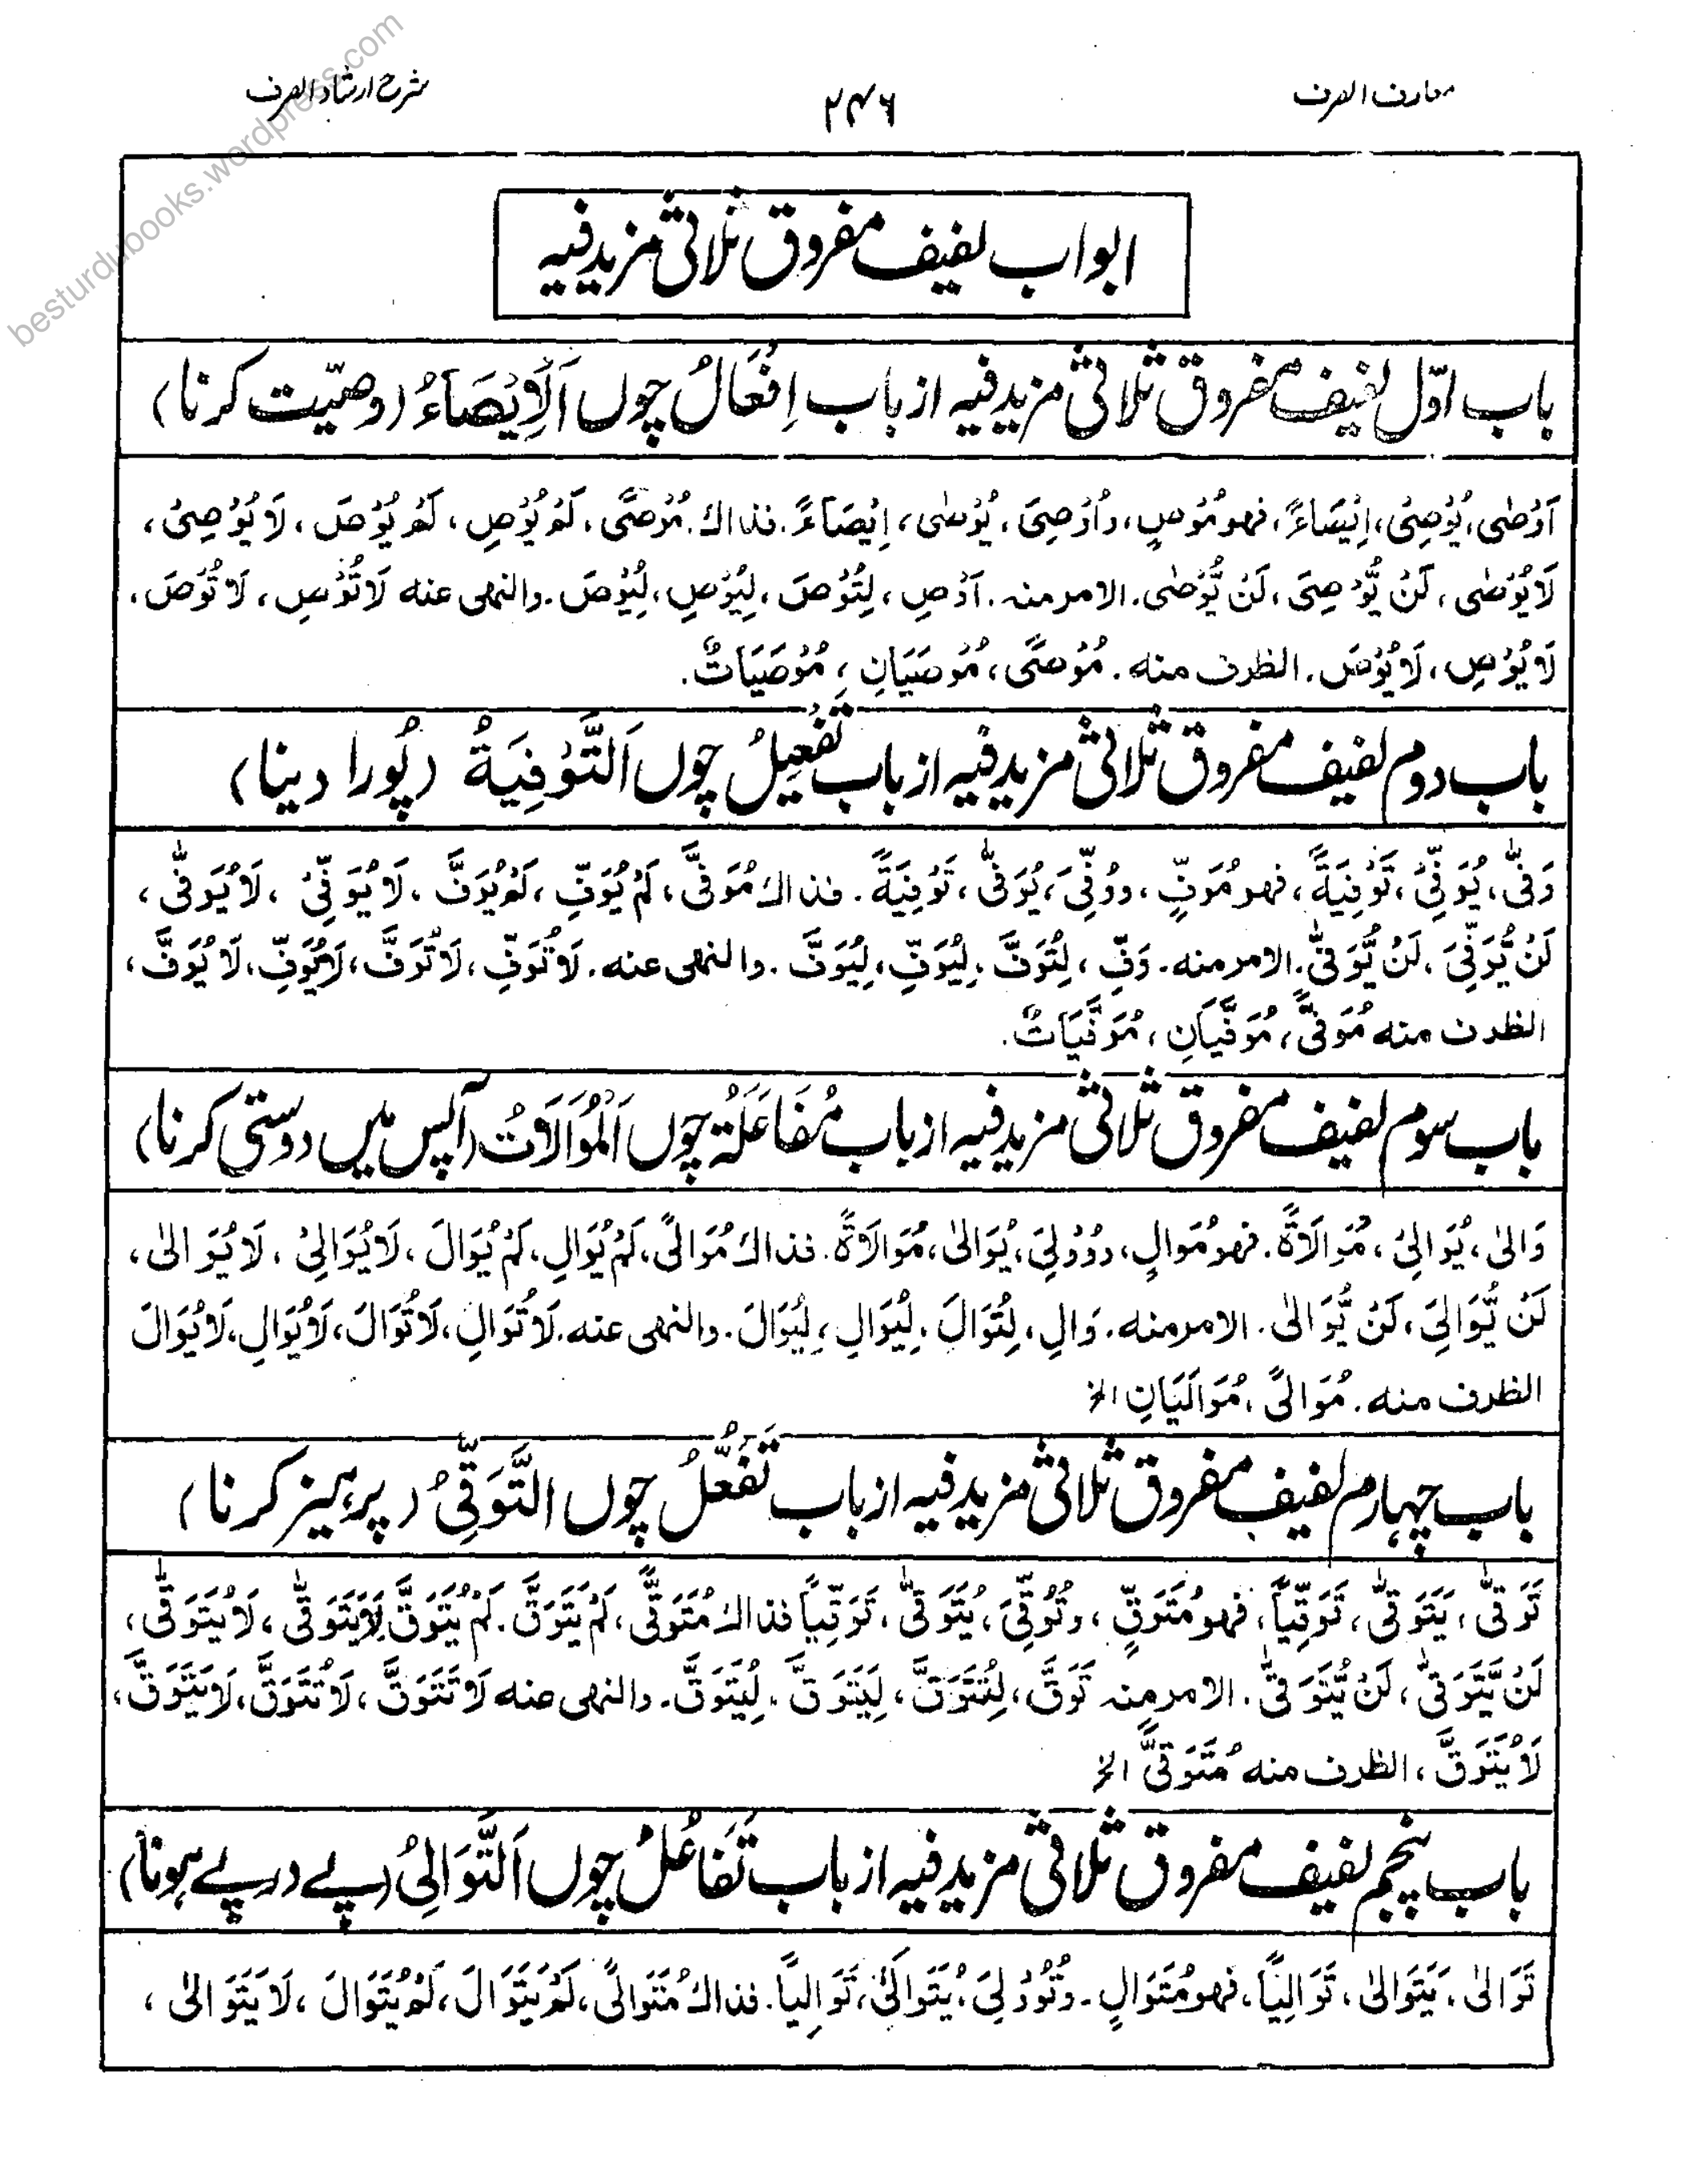 معارف الصرف
۲۴۶
شرح ارشاد الصرف
besturdubooks.wordpress.com
ابواب لفیف مفروق ثلاثی مزید فیہ
باب اوّل لفیف مفروق ثلاثی مزید فیہ از باب اِفْعَالُ چوں اَلْاِیْصَاءُ (وصیّت کرنا)
اَوْصٰی، یُوْصِیْ، اِیْصَاءً، فهو مُوْصٍ، واُوْصِیَ، یُوْصٰی، اِیْصَاءً. فذاك. مُوْصًی، لَمْ یُوْصِ، لَمْ یُوْصَ، لَا یُوْصِیْ،
لَا یُوْصٰی، لَنْ یُّوْصِیَ، لَنْ یُّوْصٰی. الامر منه. اَوْصِ، لِتُوْصَ، لِیُوْصِ، لِیُوْصَ. والنهی عنه لَا تُوْصِ، لَا تُوْصَ،
لَا یُوْصِ، لَا یُوْصَ. الظرف منه. مُوْصًی، مُوْصَیَانِ، مُوْصَیَاتٌ.
باب دوم لفیف مفروق ثلاثی مزید فیہ از باب تَفْعِیْلُ چوں اَلتَّوْفِیَةُ (پُورا دینا)
وَفّٰی، یُوَفِّیْ، تَوْفِیَةً، فهو مُوَفٍّ، ووُفِّیَ، یُوَفّٰی، تَوْفِیَةً. فذاك مُوَفًّی، لَمْ یُوَفِّ، لَمْ یُوَفَّ، لَا یُوَفِّیْ، لَا یُوَفّٰی،
لَنْ یُّوَفِّیَ، لَنْ یُّوَفّٰی. الامر منه. وَفِّ، لِتُوَفَّ، لِیُوَفِّ، لِیُوَفَّ. والنهی عنه. لَا تُوَفِّ، لَا تُوَفَّ، لَا یُوَفِّ، لَا یُوَفَّ،
الظرف منه مُوَفًّی، مُوَفَّیَانِ، مُوَفَّیَاتٌ.
باب سوم لفیف مفروق ثلاثی مزید فیہ از باب مُفَاعَلَة چوں اَلْمُوَالَاتُ (آپس میں دوستی کرنا)
وَالٰی، یُوَالِیْ، مُوَالَاةً. فهو مُوَالٍ، ووُوْلِیَ، یُوَالٰی، مُوَالَاةً. فذاك مُوَالًی، لَمْ یُوَالِ، لَمْ یُوَالَ، لَا یُوَالِیْ، لَا یُوَالٰی،
لَنْ یُّوَالِیَ، لَنْ یُّوَالٰی. الامر منه. وَالِ، لِتُوَالَ، لِیُوَالِ، لِیُوَالَ. والنهی عنه. لَا تُوَالِ، لَا تُوَالَ، لَا یُوَالِ، لَا یُوَالَ
الظرف منه. مُوَالًی، مُوَالَیَانِ الخ
باب چہارم لفیف مفروق ثلاثی مزید فیہ از باب تَفَعُّلُ چوں التَّوَقِّیُ (پرہیز کرنا)
تَوَقّٰی، یَتَوَقّٰی، تَوَقِّیًا، فهو مُتَوَقٍّ، وتُوُقِّیَ، یُتَوَقّٰی، تَوَقِّیًا فذاك مُتَوَقًّی، لَمْ یَتَوَقَّ. لَمْ یُتَوَقَّ لَا یَتَوَقّٰی، لَا یُتَوَقّٰی،
لَنْ یَّتَوَقّٰی، لَنْ یُّتَوَقّٰی. الامر منه تَوَقَّ، لِتُتَوَقَّ، لِیَتَوَقَّ، لِیُتَوَقَّ. والنهی عنه لَا تَتَوَقَّ، لَا تُتَوَقَّ، لَا یَتَوَقَّ،
لَا یُتَوَقَّ، الظرف منه مُتَوَقًّی الخ
باب پنجم لفیف مفروق ثلاثی مزید فیہ از باب تَفَاعُلُ چوں اَلتَّوَالِیُ (پے در پے ہونا)
تَوَالٰی، یَتَوَالٰی، تَوَالِیًا، فهو مُتَوَالٍ۔ وتُوُوْلِیَ، یُتَوَالٰی، تَوَالِیًا. فذاك مُتَوَالًی، لَمْ یَتَوَالَ، لَمْ یُتَوَالَ، لَا یَتَوَالٰی،